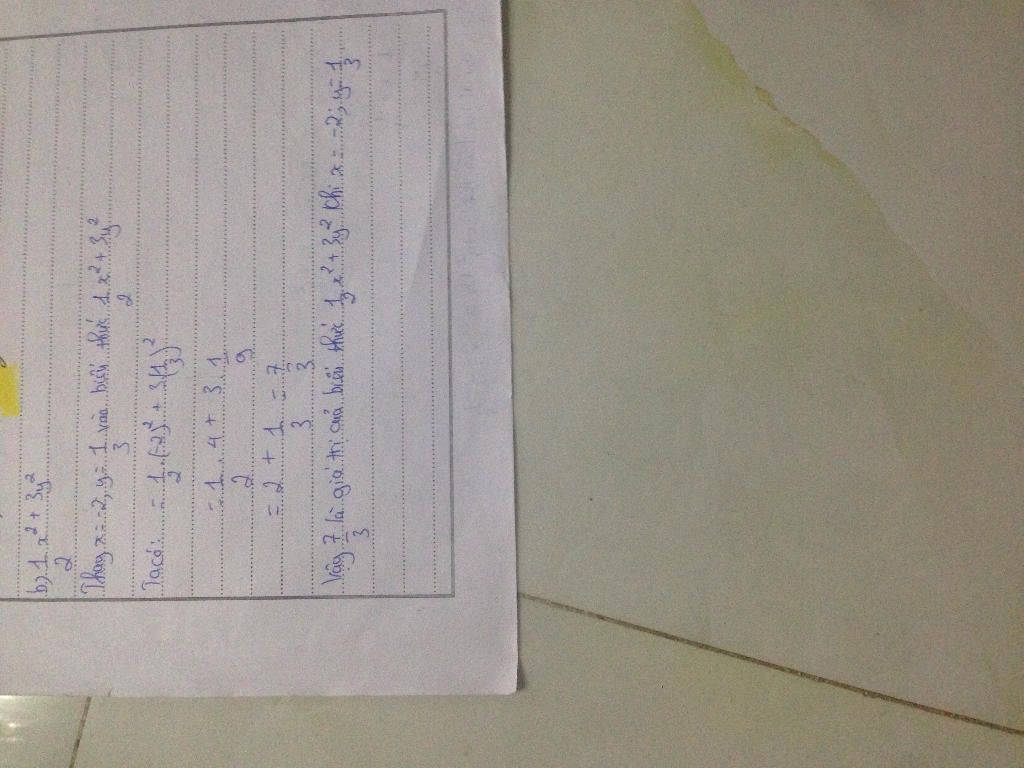 b) 1 x² + 3y²
2
Thay x = -2, y = 1 vào biểu thức 1 x² + 3y²
3 2
Ta có: = 1 . (-2)² + 3(1)²
2 3
= 1 . 4 + 3 . 1
2 9
= 2 + 1 = 7
3 3
Vậy 7 là giá trị của biểu thức 1 x² + 3y² khi x = -2; y = 1
3 2 3